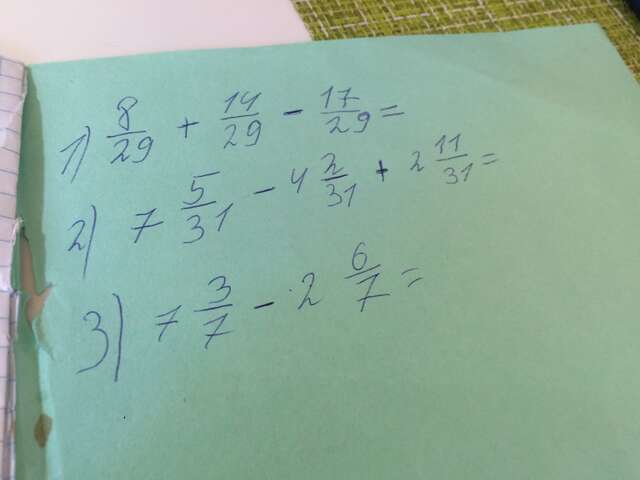 1) 8/29 + 14/29 - 17/29 =
2) 7 5/31 - 4 2/31 + 2 11/31 =
3) 7 3/7 - 2 6/7 =